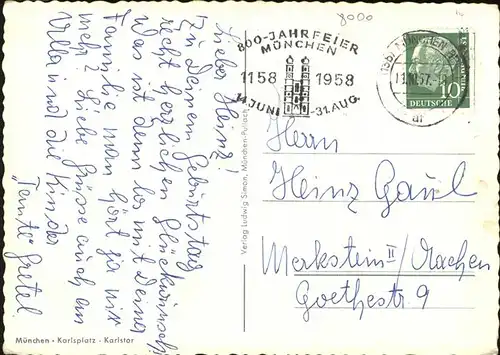 8000
800-JAHRFEIER
MÜNCHEN
1158 1958
14. JUNI -31. AUG.
MÜNCHEN
11.XI.57.
10
DEUTSCHE
Lieber Heinz!
Zu Deinem Geburtstag
recht herzlichen Glückwunsch
Was ist denn los mit Deiner
Familie man hört ja nix
mehr? Liebe Grüsse auch an
Ulla und die Kinder
"Tante" Gretel
Verlag Ludwig Simon, München-Pullach
Herrn
Heinz Gaul
Merkstein II/Aachen
Goethestr. 9
München · Karlsplatz - Karlstor